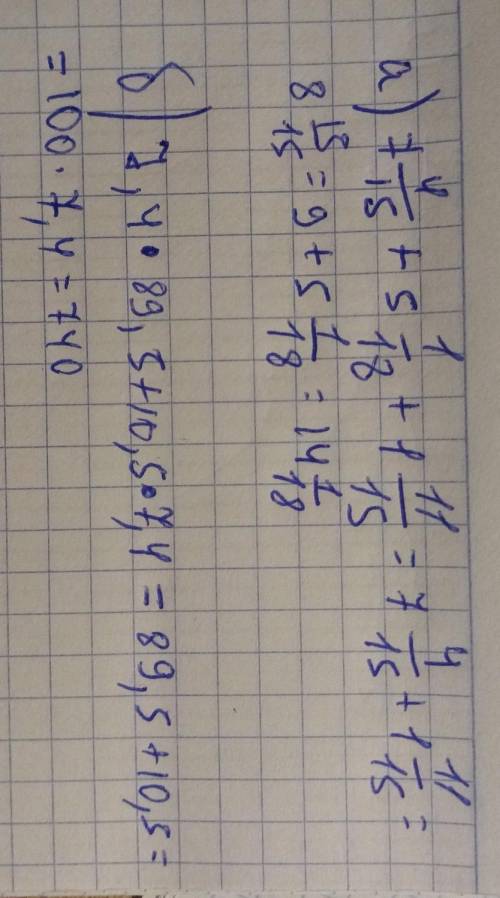 а) 7 4/15 + 5 1/18 + 1 11/15 = 7 4/15 + 1 11/15 =
8 15/15 = 9 + 5 1/18 = 14 1/18
б) 7,4 · 89,5 + 10,5 · 7,4 = 89,5 + 10,5 =
= 100 · 7,4 = 740